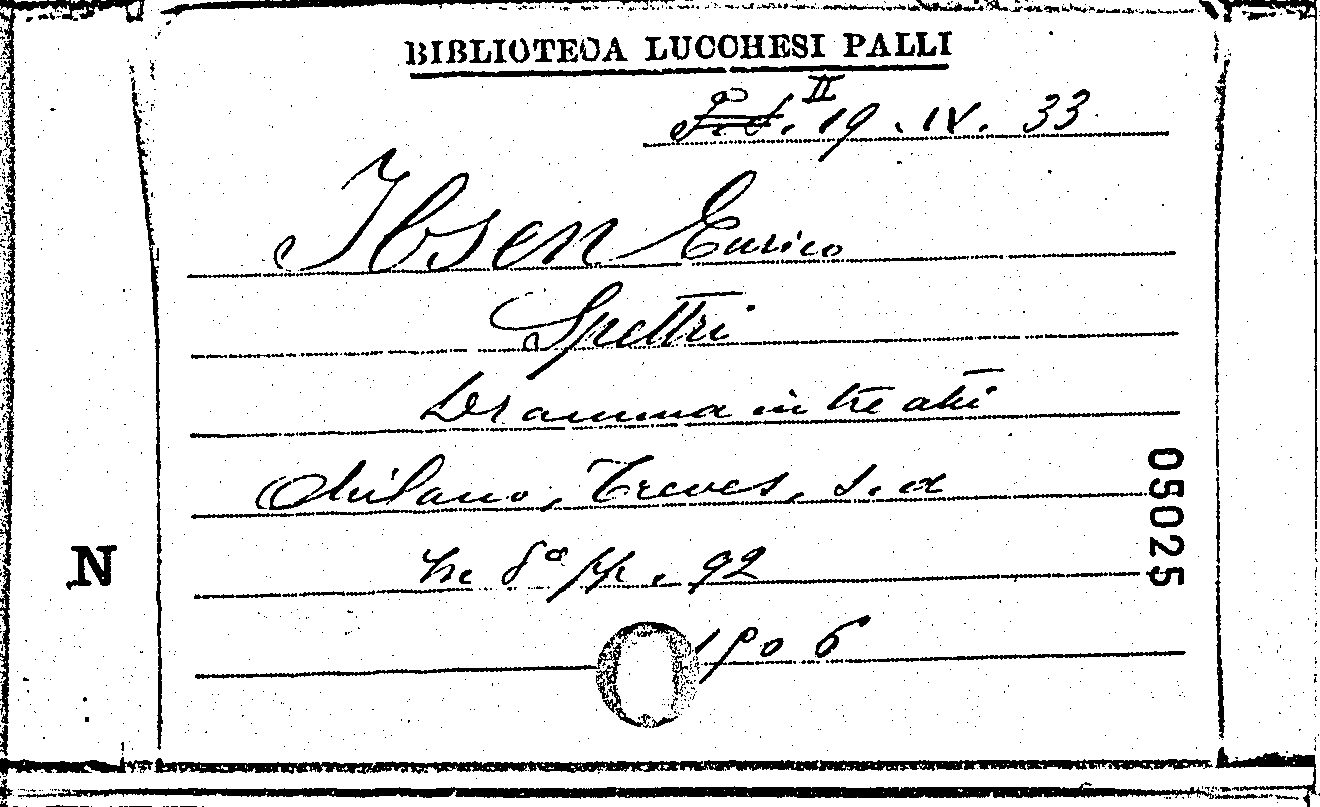 BIBLIOTECA LUCCHESI PALLI
II
19. IV. 33
Ibsen Enrico
Spettri
Dramma in tre atti
Milano, Treves, s. d
In 8° pp. 92
N
05025